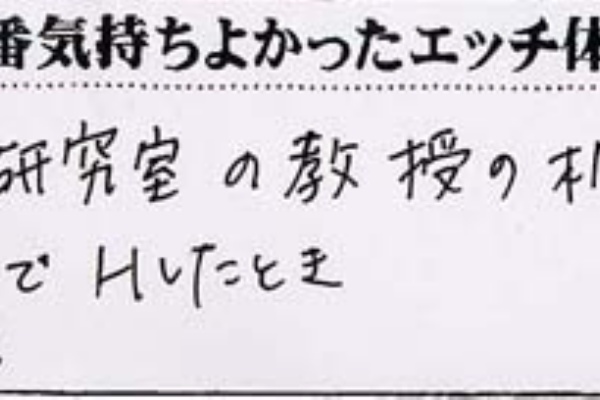 番気持ちよかったエッチ体
研究室の教授の机
でHしたとき